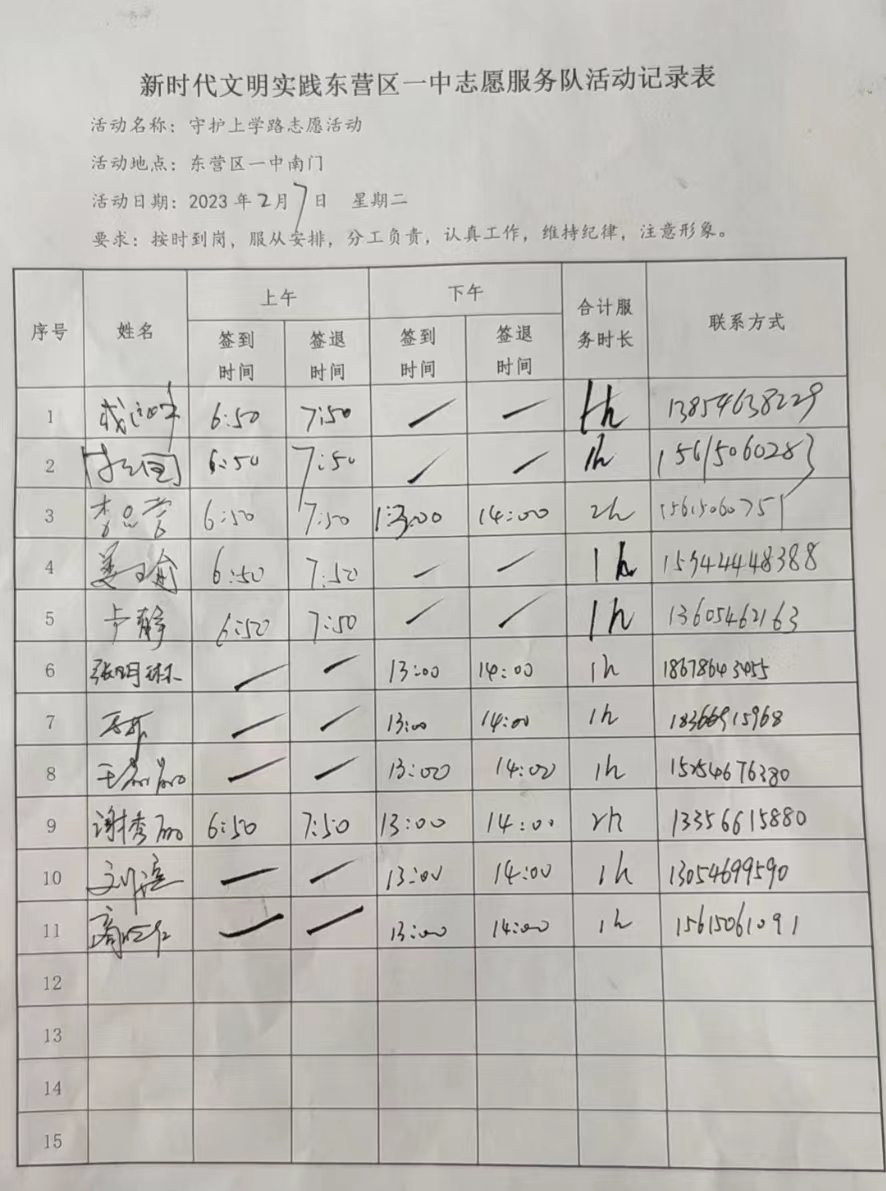 新时代文明实践东营区一中志愿服务队活动记录表
活动名称：守护上学路志愿活动
活动地点：东营区一中南门
活动日期：2023年2月7日 星期二
要求：按时到岗，服从安排，分工负责，认真工作，维持纪律，注意形象。
序号 姓名 上午 下午 合计服务时长 联系方式
签到时间 签退时间 签到时间 签退时间
1 6:50 7:50 / / 1h 13854638229
2 6:50 7:50 / / 1h 15615060283
3 6:50 7:50 13:00 14:00 2h 15615060751
4 姜瑜 6:50 7:50 / / 1h 15344448388
5 卢静 6:50 7:50 / / 1h 13605462163
6 张明琳 / / 13:00 14:00 1h
7 / / 13:00 14:00 1h 18366915968
8 / / 13:00 14:00 1h 15254676380
9 谢秀丽 6:50 7:50 13:00 14:00 2h 13356615880
10 / / 13:00 14:00 1h 13054699590
11 / / 13:00 14:00 1h 15615061091
12
13
14
15